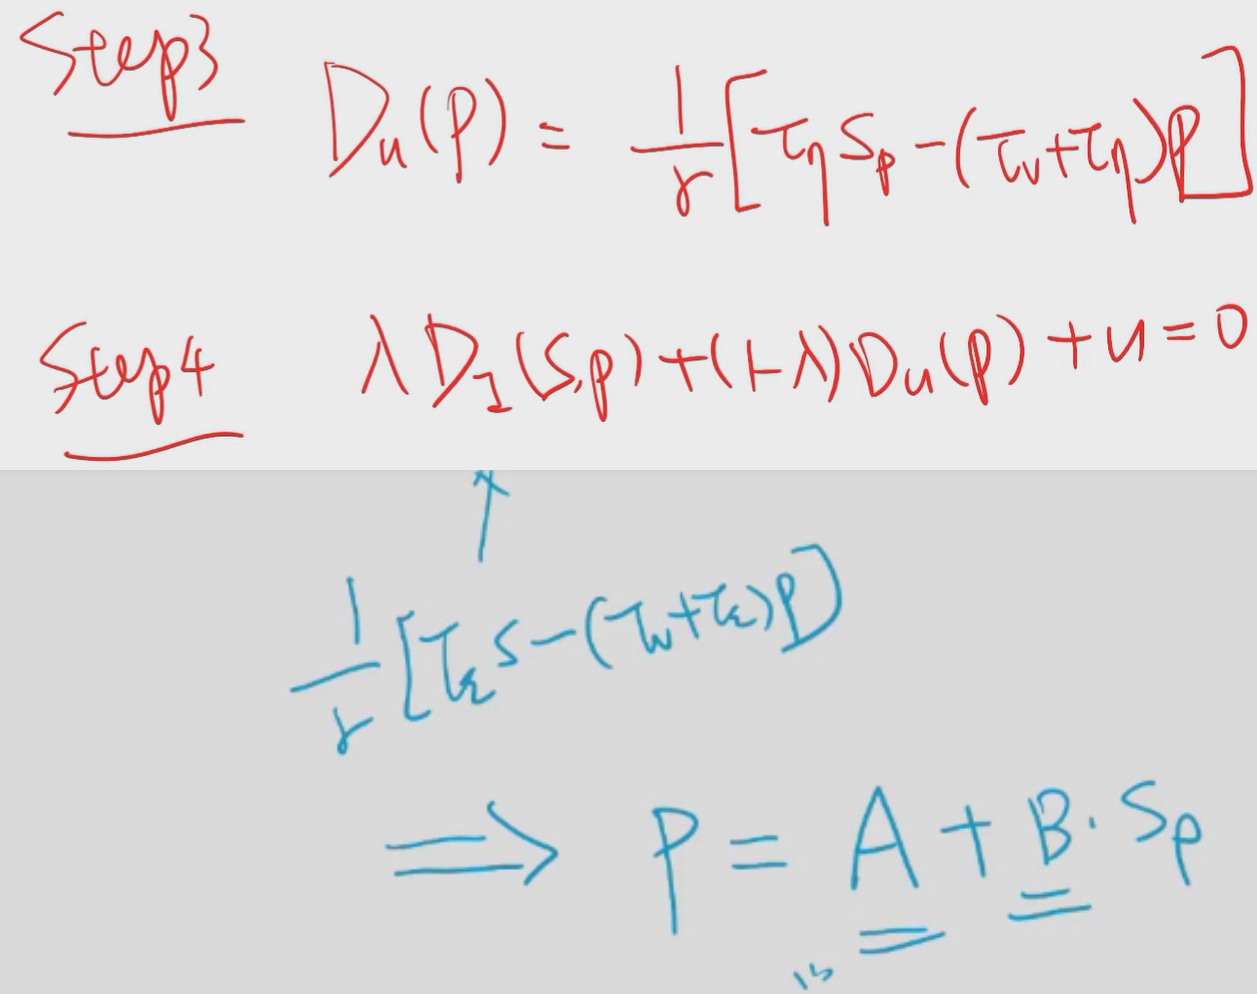 Step3
D_u(p) = 1/γ [τ_η S_p - (τ_v + τ_η)p]
Step4
λ D_I(s,p) + (1-λ) D_u(p) + u = 0
1/γ [τ_ε s - (τ_v + τ_ε)p]
⟹ P = A + B · S_p